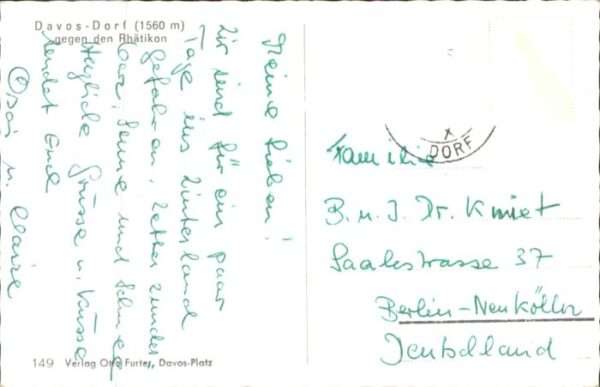 Davos-Dorf (1560 m)
gegen den Rhätikon
Meine Lieben!
Wir sind für ein paar
Tage ins Winterland
gefahren. Wetter wunder-
bar, Sonne und Schnee
Herzliche Grüsse u. Küsse
sendet Euch
u. Claire
DORF
Familie
B. u. J. Dr. Kmiet
Saalestrasse 37
Berlin-Neukölln
Deutschland
149 Verlag Otto Furter, Davos-Platz